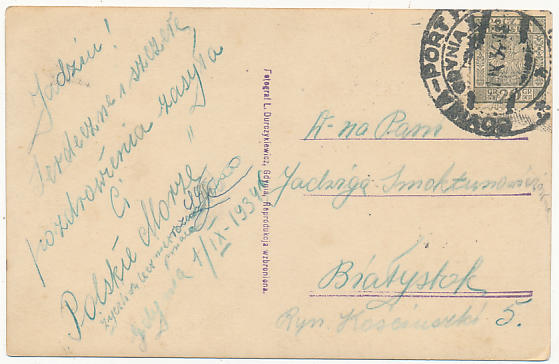 Jadziu!
Serdeczne i szczere
pozdrowienia zasyła
Ci
"Polskie Morze"
Gdynia 1/IX-1934
Fotograf L. Durczykiewicz, Gdynia. Reprodukcja wzbroniona.
PORT
GDYNIA
W-na Pani
Jadwiga Smoktunowicz
Białystok
Ryn. Kościuszki 5.